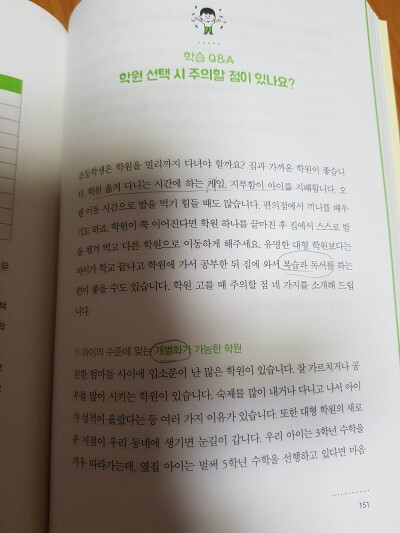 학습 Q&A
학원 선택 시 주의할 점이 있나요?
초등학생은 학원을 멀리까지 다녀야 할까요? 집과 가까운 학원이 좋습니
다. 학원 옮겨 다니는 시간에 하는 게임, 지루함이 아이를 지배합니다. 오
랜 이동 시간으로 밥을 먹기 힘들 때도 많습니다. 편의점에서 끼니를 때우
기도 하죠. 학원이 쭉 이어진다면 학원 하나를 끝마친 후 집에서 스스로 밥
을 챙겨 먹고 다른 학원으로 이동하게 해주세요. 유명한 대형 학원보다는
아이가 학교 끝나고 학원에 가서 공부한 뒤 집에 와서 복습과 독서를 하는
편이 좋을 수도 있습니다. 학원 고를 때 주의할 점 네 가지를 소개해 드립
니다.
아이의 수준에 맞는 개별화가 가능한 학원
친한 엄마들 사이에 입소문이 난 많은 학원이 있습니다. 잘 가르치거나 공
부를 많이 시키는 학원이 있습니다. 숙제를 많이 내거나 다니고 나서 아이
가 성적이 올랐다는 등 여러 가지 이유가 있습니다. 또한 대형 학원의 새로
운 지점이 우리 동네에 생기면 눈길이 갑니다. 우리 아이는 3학년 수학을
겨우 따라가는데, 옆집 아이는 벌써 5학년 수학을 선행하고 있다면 마음
151
유
책